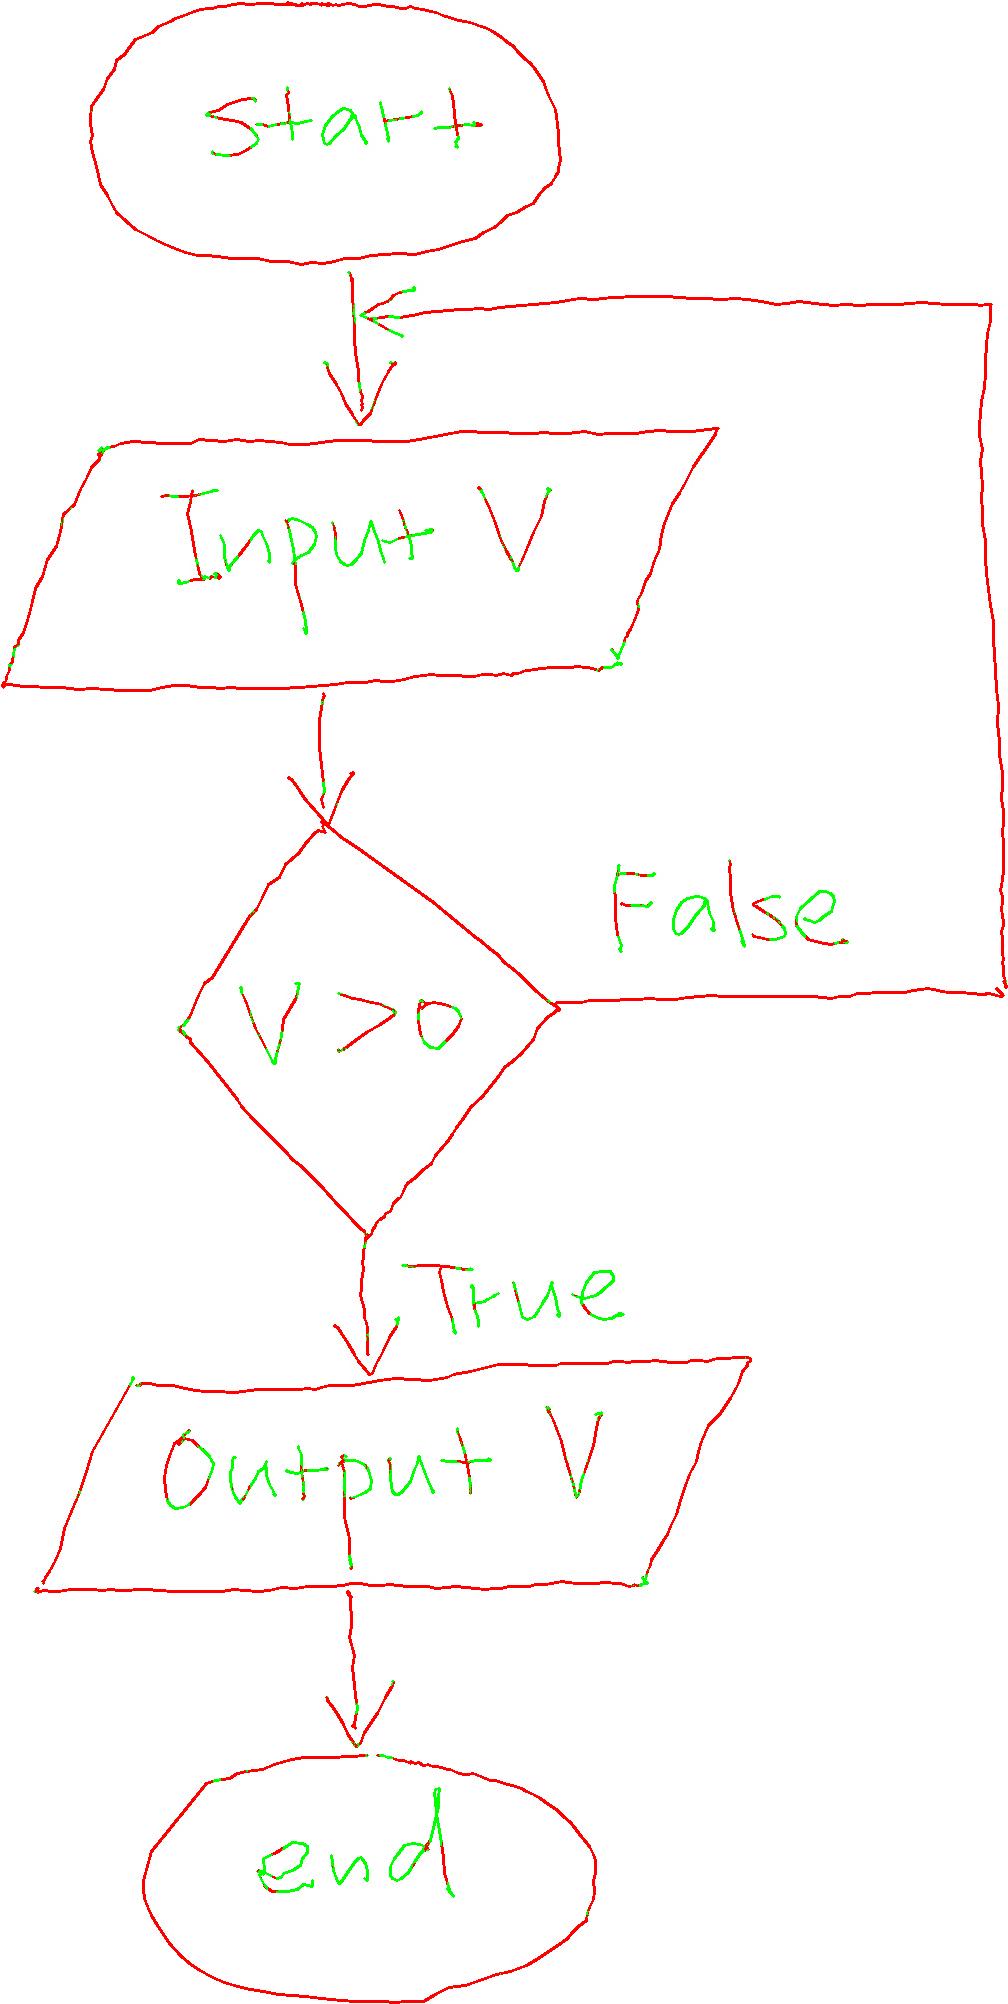 Start
Input V
False
V > 0
True
Output V
end